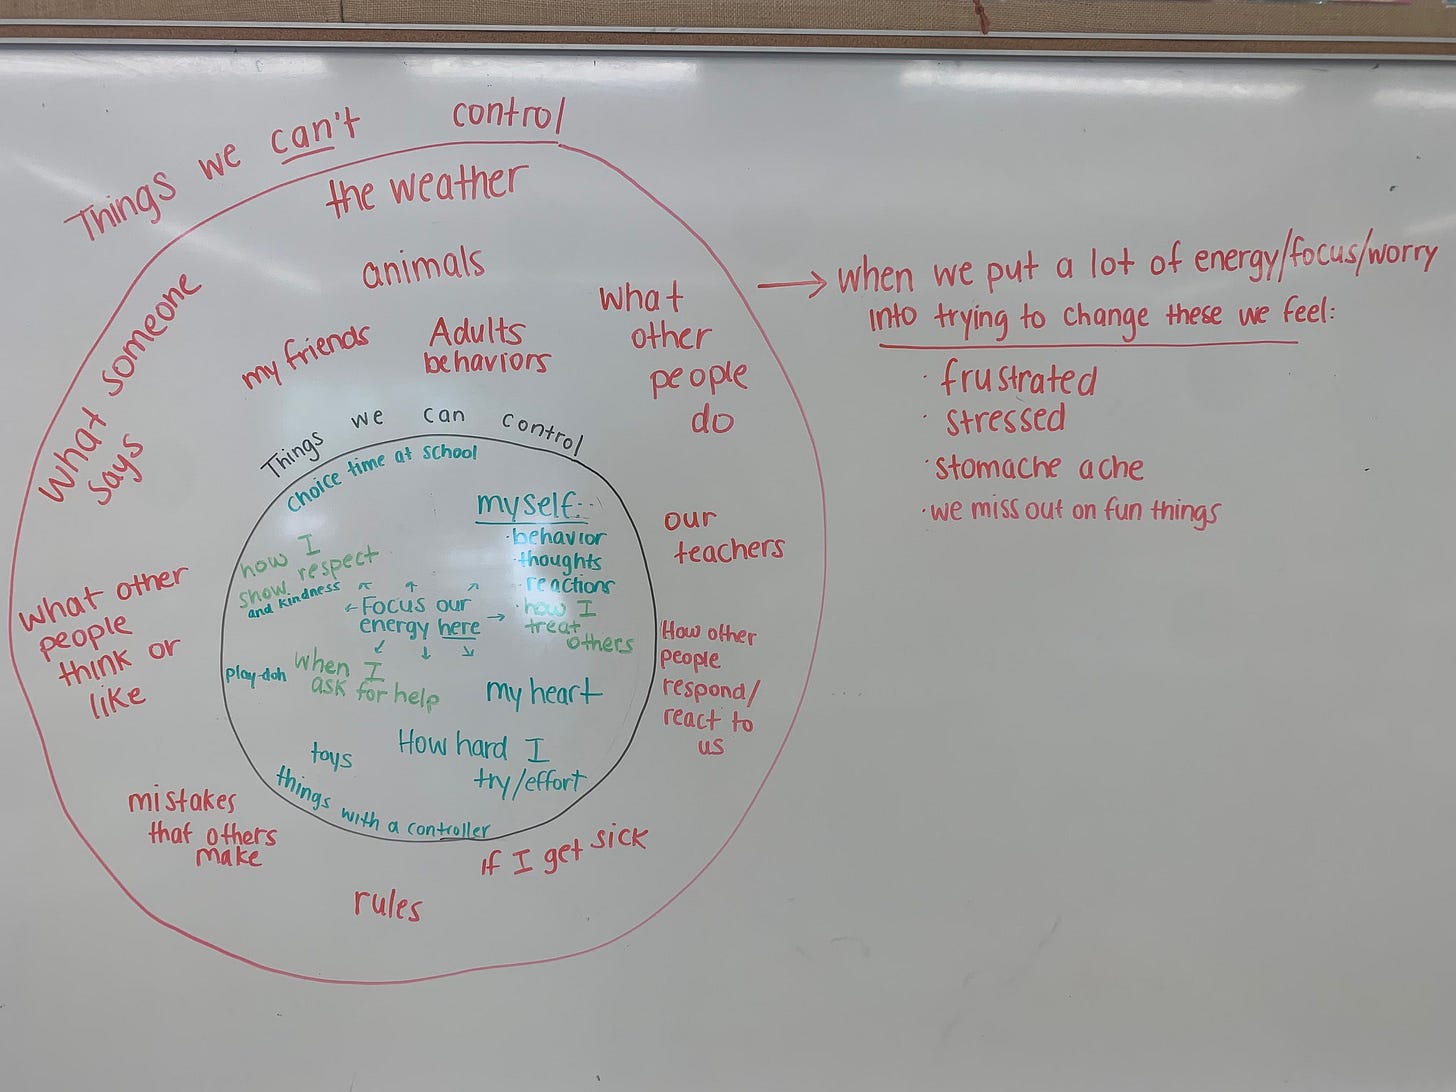 Things we can't control
the weather
animals
my friends
Adults
behaviors
what
other
people
do
What someone
says
our
teachers
What other
people
think or
like
How other
people
respond/
react to
us
mistakes
that others
make
if I get sick
rules
Things we can control
choice time at school
myself:
· behavior
· thoughts
· reactions
· how I
treat
others
how I
show respect
and kindness
Focus our
energy here
play-doh
when I
ask for help
my heart
toys
How hard I
try/effort
things with a controller
→ when we put a lot of energy/focus/worry
into trying to change these we feel:
· frustrated
· stressed
· stomache ache
· we miss out on fun things